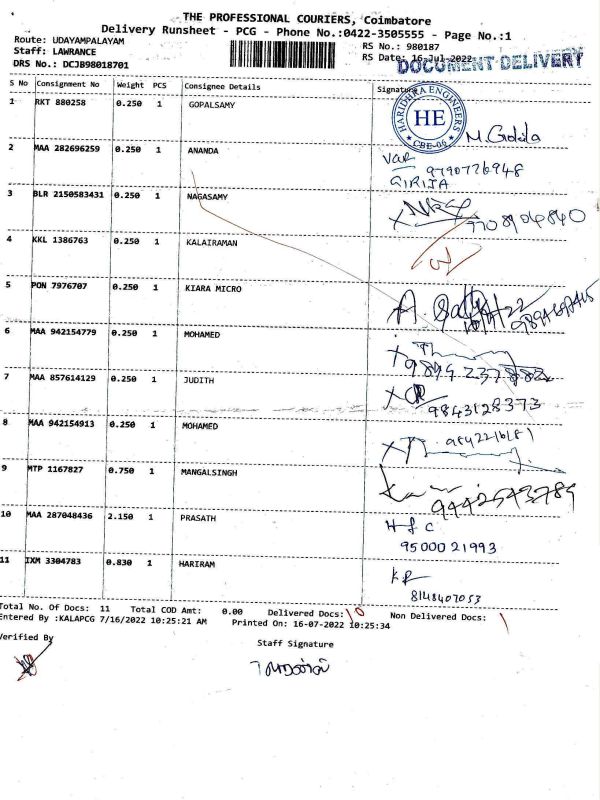 THE PROFESSIONAL COURIERS, Coimbatore
Delivery Runsheet - PCG - Phone No.:0422-3505555 - Page No.:1
Route: UDAYAMPALAYAM
Staff: LAWRANCE
DRS No.: DCJB98018701
RS No.: 980187
RS Date: 16-Jul-2022
DOCUMENT DELIVERY
S No Consignment No Weight PCS Consignee Details Signature
1 RKT 880258 0.250 1 GOPALSAMY
HARIDHRA ENGINEERS
HE
CBE-06
2 MAA 282696259 0.250 1 ANANDA
9790776948
GIRIJA
3 BLR 2150583431 0.250 1 NAGASAMY
7708904840
4 KKL 1386763 0.250 1 KALAIRAMAN
5 PON 7976707 0.250 1 KIARA MICRO
6 MAA 942154779 0.250 1 MOHAMED
9894 237882
7 MAA 857614129 0.250 1 JUDITH
9843128373
8 MAA 942154913 0.250 1 MOHAMED
9 MTP 1167827 0.750 1 MANGALSINGH
9442543789
10 MAA 287048436 2.150 1 PRASATH
95000 21993
11 IXM 3304783 0.830 1 HARIRAM
KR
8148407053
Total No. Of Docs: 11 Total COD Amt: 0.00 Delivered Docs: 10 Non Delivered Docs: 1
Entered By :KALAPCG 7/16/2022 10:25:21 AM Printed On: 16-07-2022 10:25:34
Verified By
Staff Signature